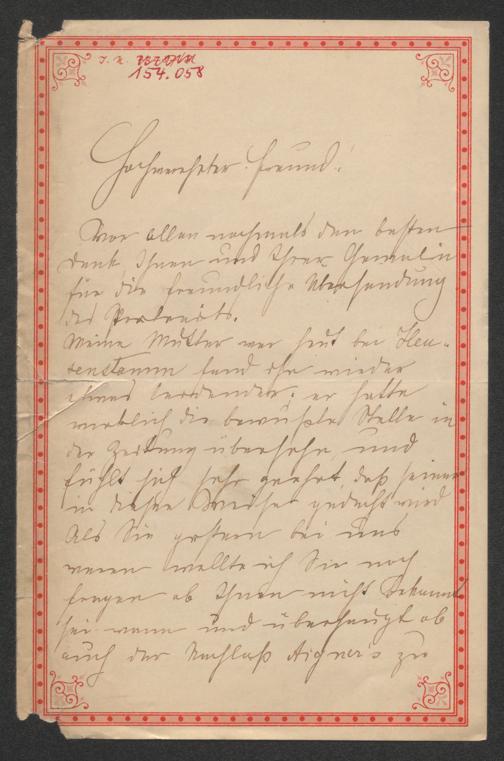 I. N.
154.058
Hochverehrter Freund!
Vor allem nochmals den besten
Dank Ihnen und Ihrer Gemalin
für die freundliche Übersendung
des Portraits.
Meine Mutter war heut bei Heu-
senstamm fand ihn wieder
etwas leidender; er hatte
wirklich die bewußte Stelle in
der Zeitung übersehn, und
fühlt sich sehr geehrt, daß seiner
in dieser Weise gedacht wird
Als Sie gestern bei uns
waren wollte ich Sie noch
fragen ob Ihnen nicht bekannt
sei wann und überhaupt ob
auch der Nachlaß Aigner's zu